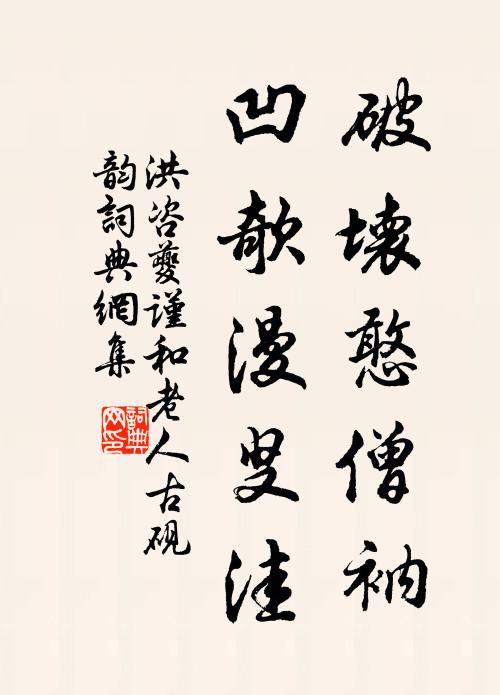 破壞憨僧衲
凹欹漫叟洼
洪咨夔謹和老人古硯
韵詞典網集